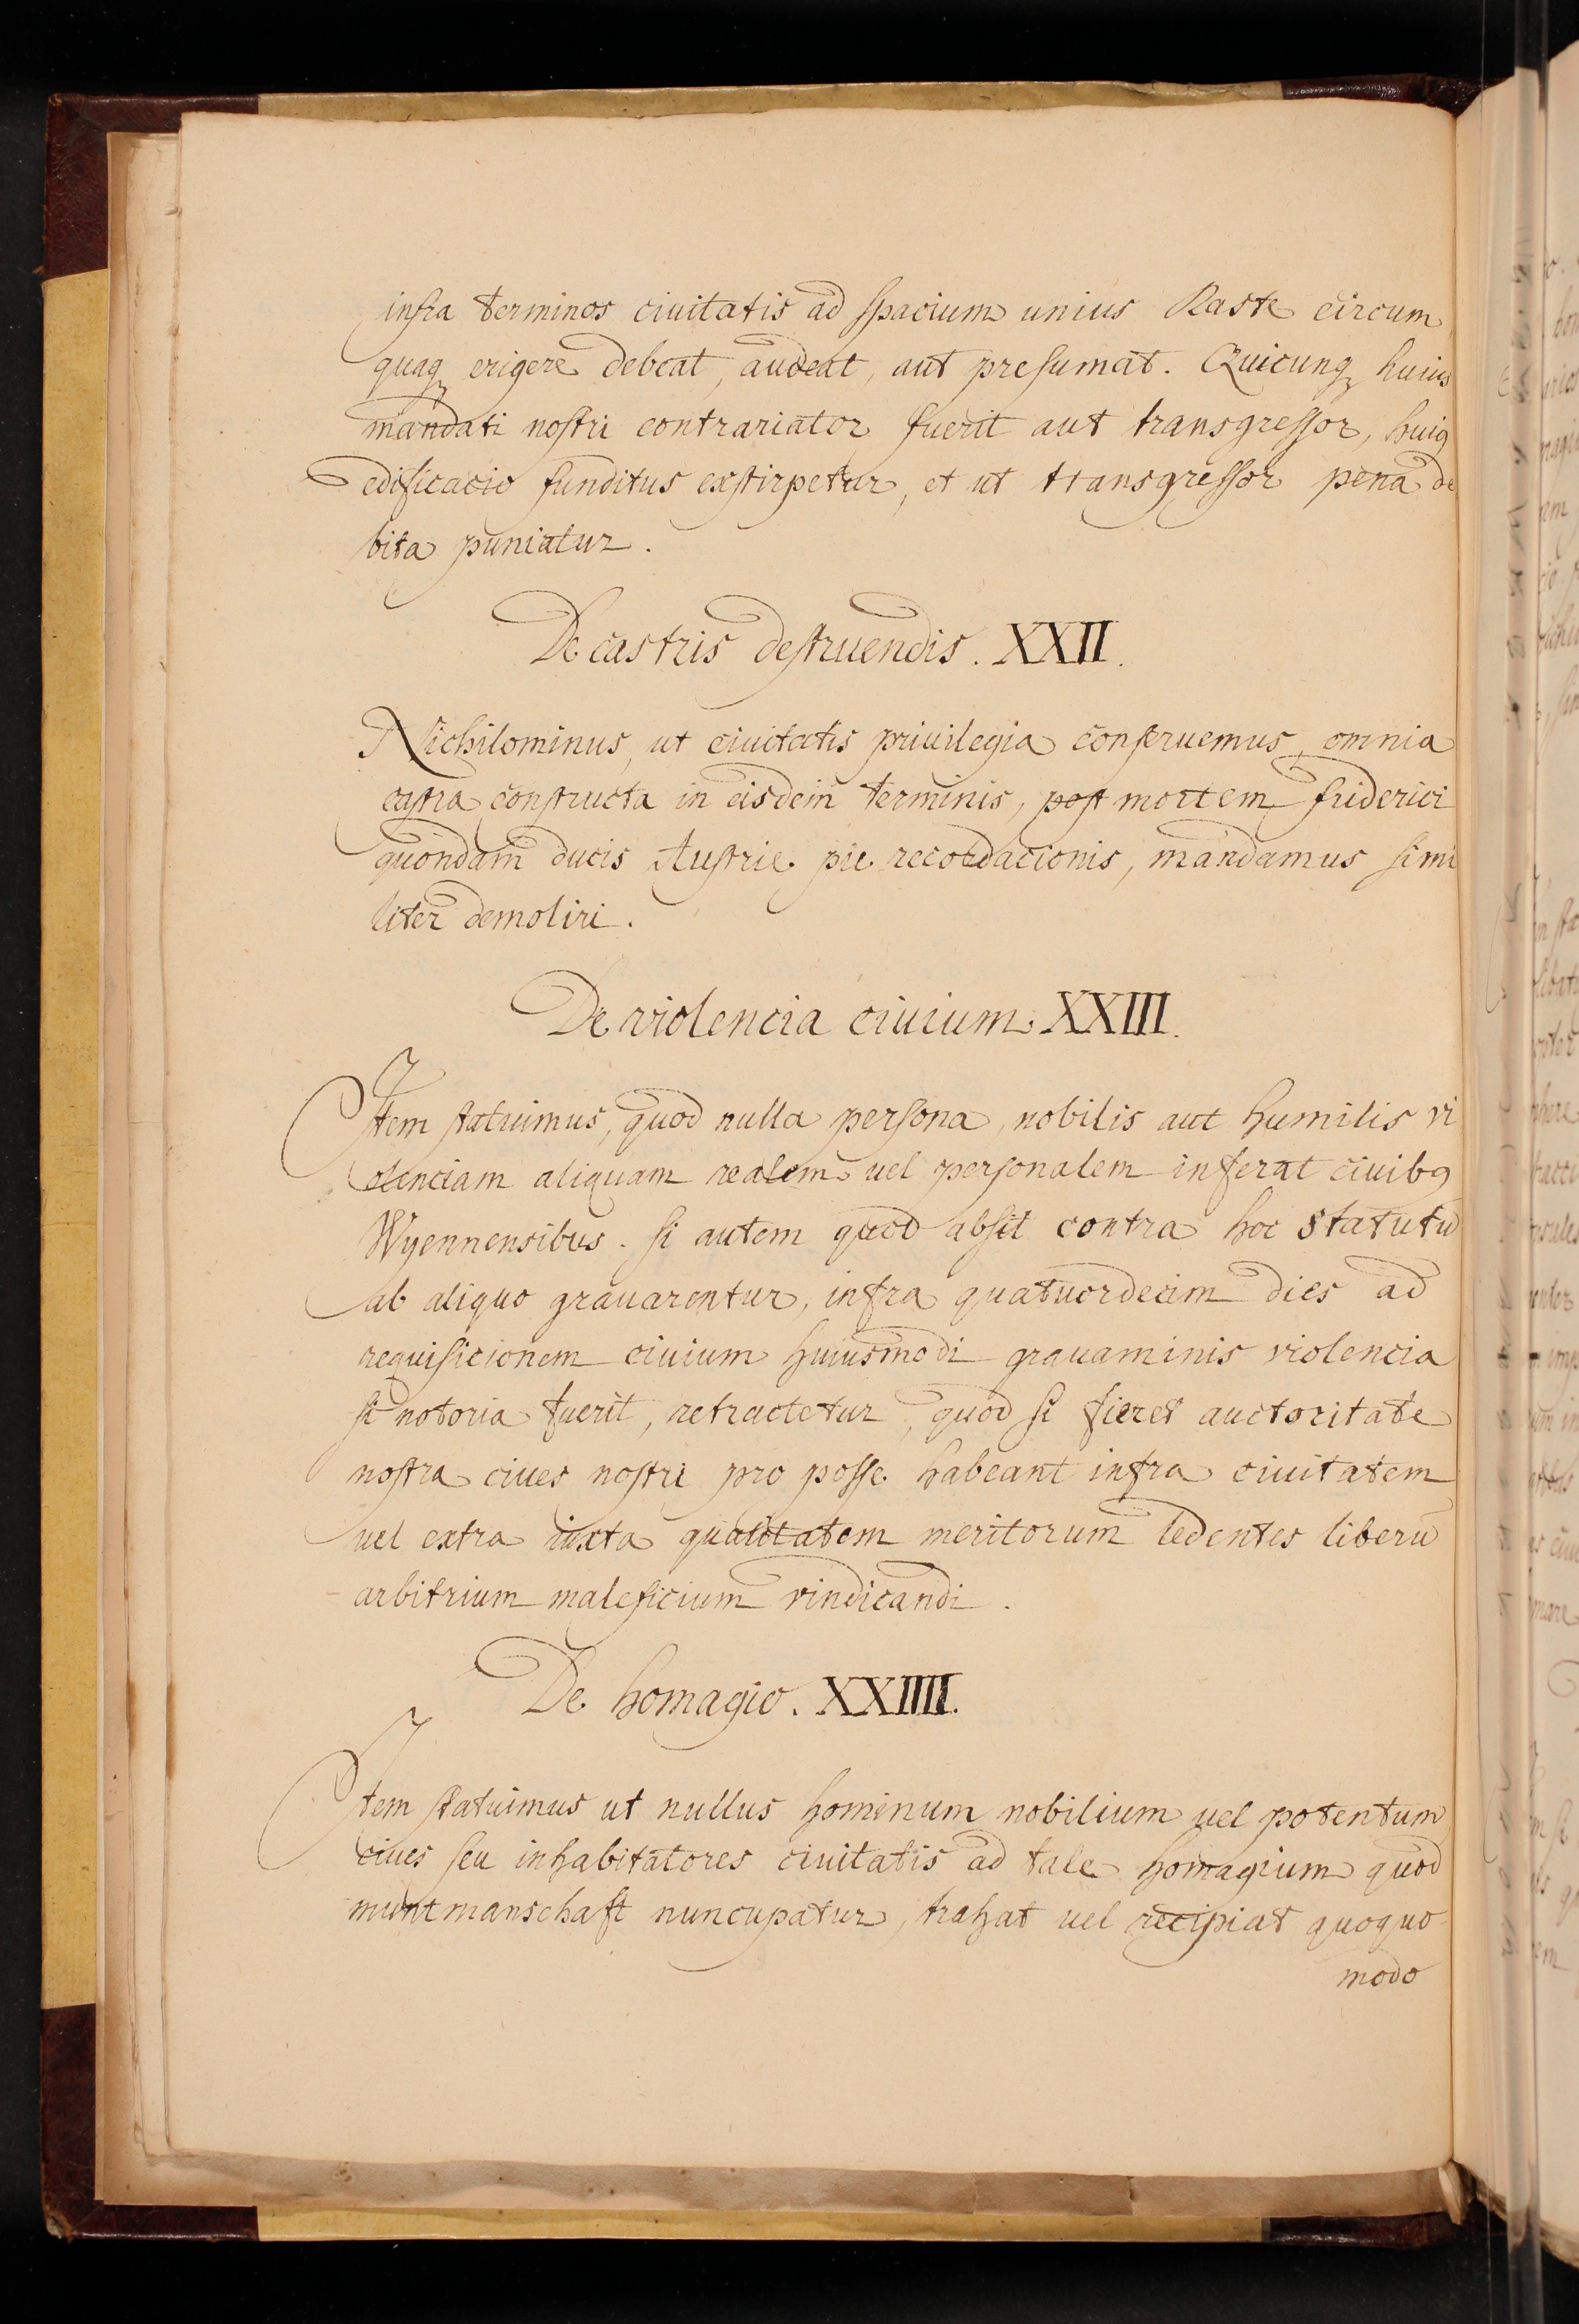 infra terminos ciuitatis ad spacium unius Raste circum
quaqꝫ erigere debeat, audeat, aut presumat. Quicunqꝫ huius
mandati nostri contrariator fuerit aut transgressor, huiꝯ
edificacio funditus exstirpetur, et ut transgressor pena de
bita puniatur.
De castris destruendis. XXII.
Nichilominus, ut ciuitatis priuilegia conseruemus, omnia
castra constructa in eisdem terminis, post mortem friderici
quondam ducis Austrie pie recordacionis, mandamus simi
liter demoliri.
De violencia ciuium. XXIII.
Item statuimus, quod nulla persona, nobilis aut humilis vi
olenciam aliquam realem uel personalem inferat ciuibꝯ
Wyennensibus. si autem quod absit contra hoc statutū
ab aliquo grauarentur, infra quatuordecim dies ad
requisicionem ciuium huiusmodi grauaminis violencia
si notoria fuerit, retractetur, quod si fieret auctoritate
nostra ciues nostri pro posse habeant infra ciuitatem
uel extra iuxta qualitatem meritorum ledentes liberū
arbitrium maleficium vindicandi.
De homagio. XXIIII.
Item statuimus ut nullus hominum nobilium uel potentum
ciues seu inhabitatores ciuitatis ad tale homagium quod
muntmanschaft nuncupatur, trahat uel recipiat quoquo
modo